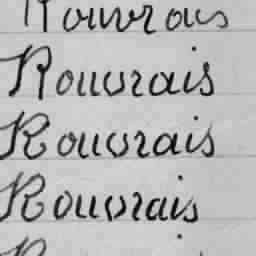 Rouvrais
Rouvrais
Rouvrais
Rouvrais